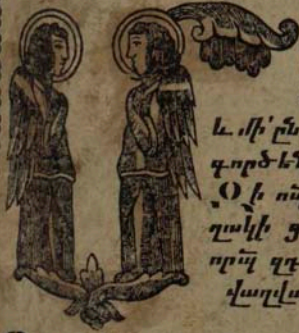 և մի՛ ըն
գործ են
Օ ի ու
ղակի ց
որպ զգ
վաղվա